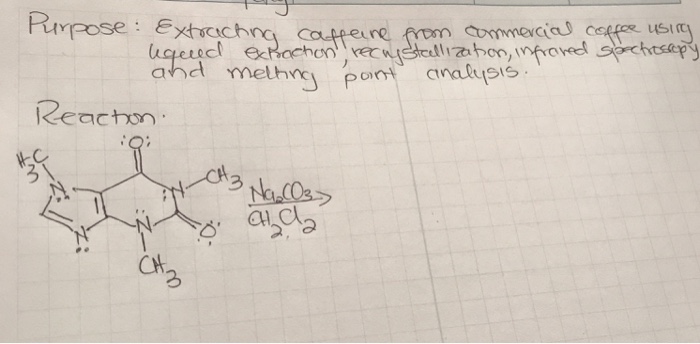 Purpose: Extracting caffeine from commercial coffee using
liquid extraction, recrystallization, infrared spectroscopy
and melting point analysis.
Reaction:
:O:
H3C
N
CH3
Na2CO3
CH2Cl2
N
N
N
O
CH3